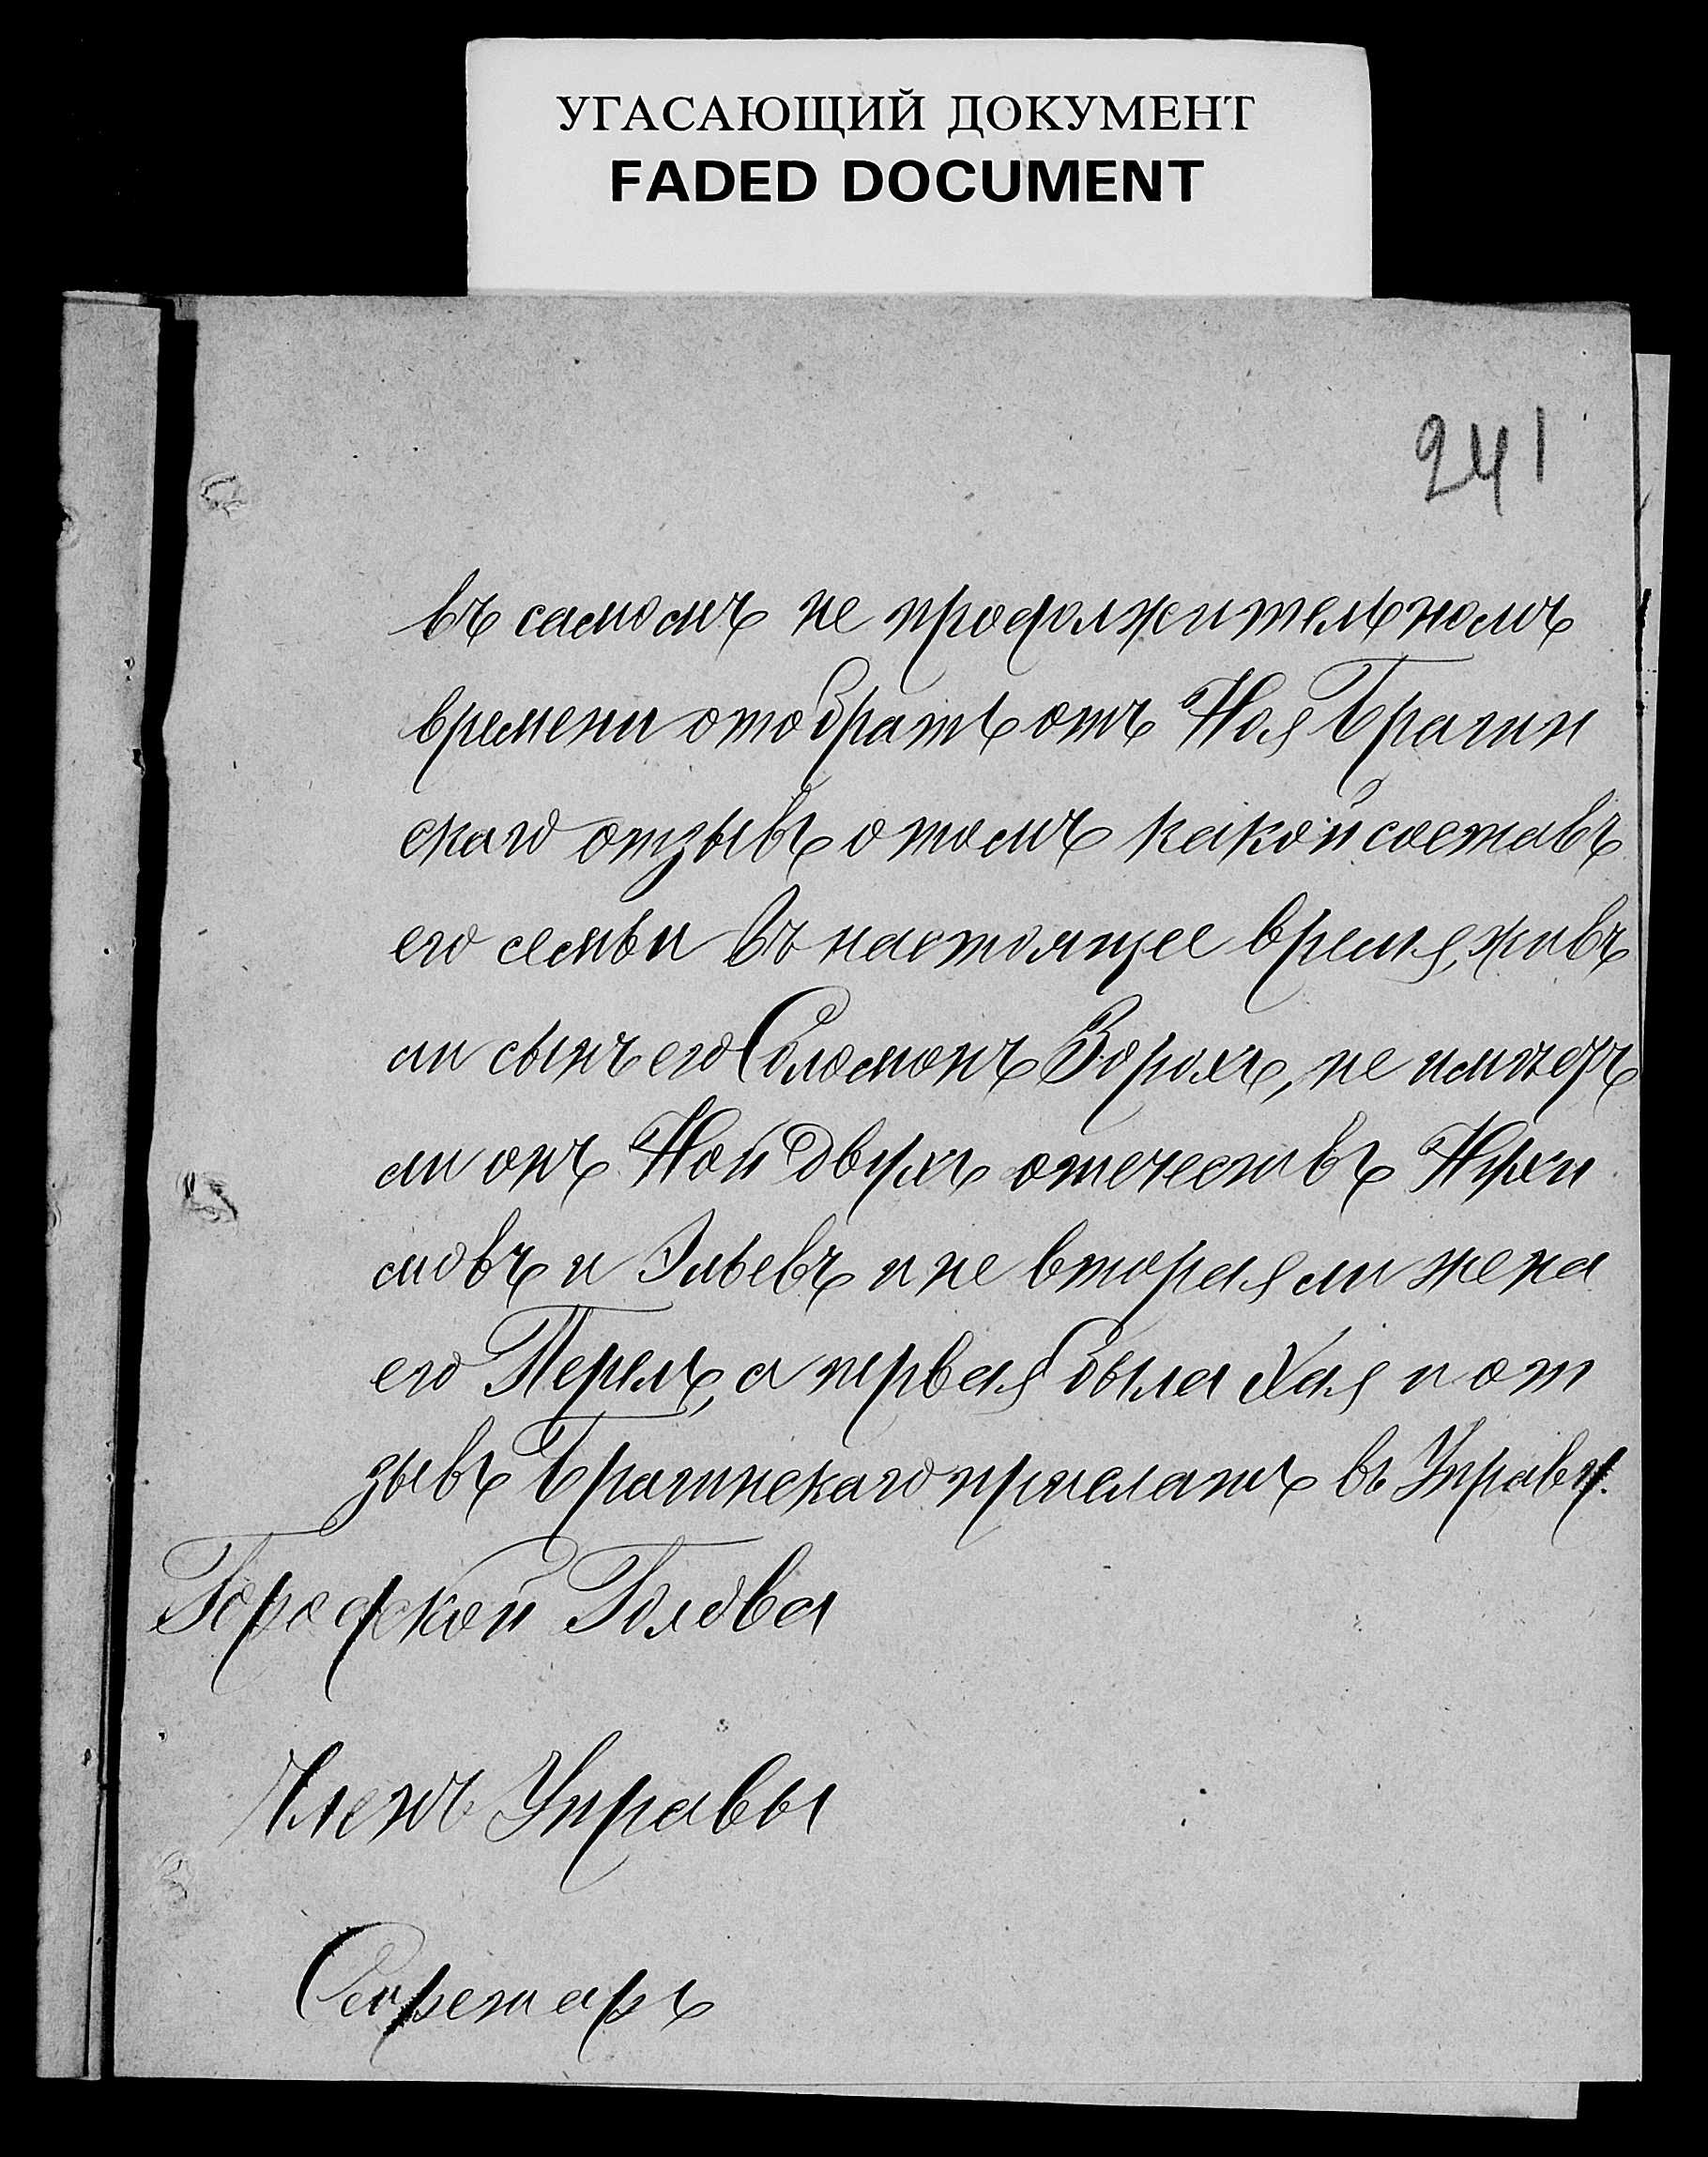 УГАСАЮЩИЙ ДОКУМЕНТ
FADED DOCUMENT
241
въ самомъ не продолжительномъ
времени отобрать отъ Ноя Брагин
скаго отзывъ о томъ какой составъ
его семьи въ настоящее время, живъ
ли сынъ его Соломонъ Зорохъ, не имѣетъ
ли онъ Ной двухъ отечествъ Нухи
мовъ и Эльевъ и не вторая ли жена
его Перель, а первая была Хая и от
зывъ Брагинскаго прислать въ Управу.
Городской Голова
Членъ Управы
Секретарь